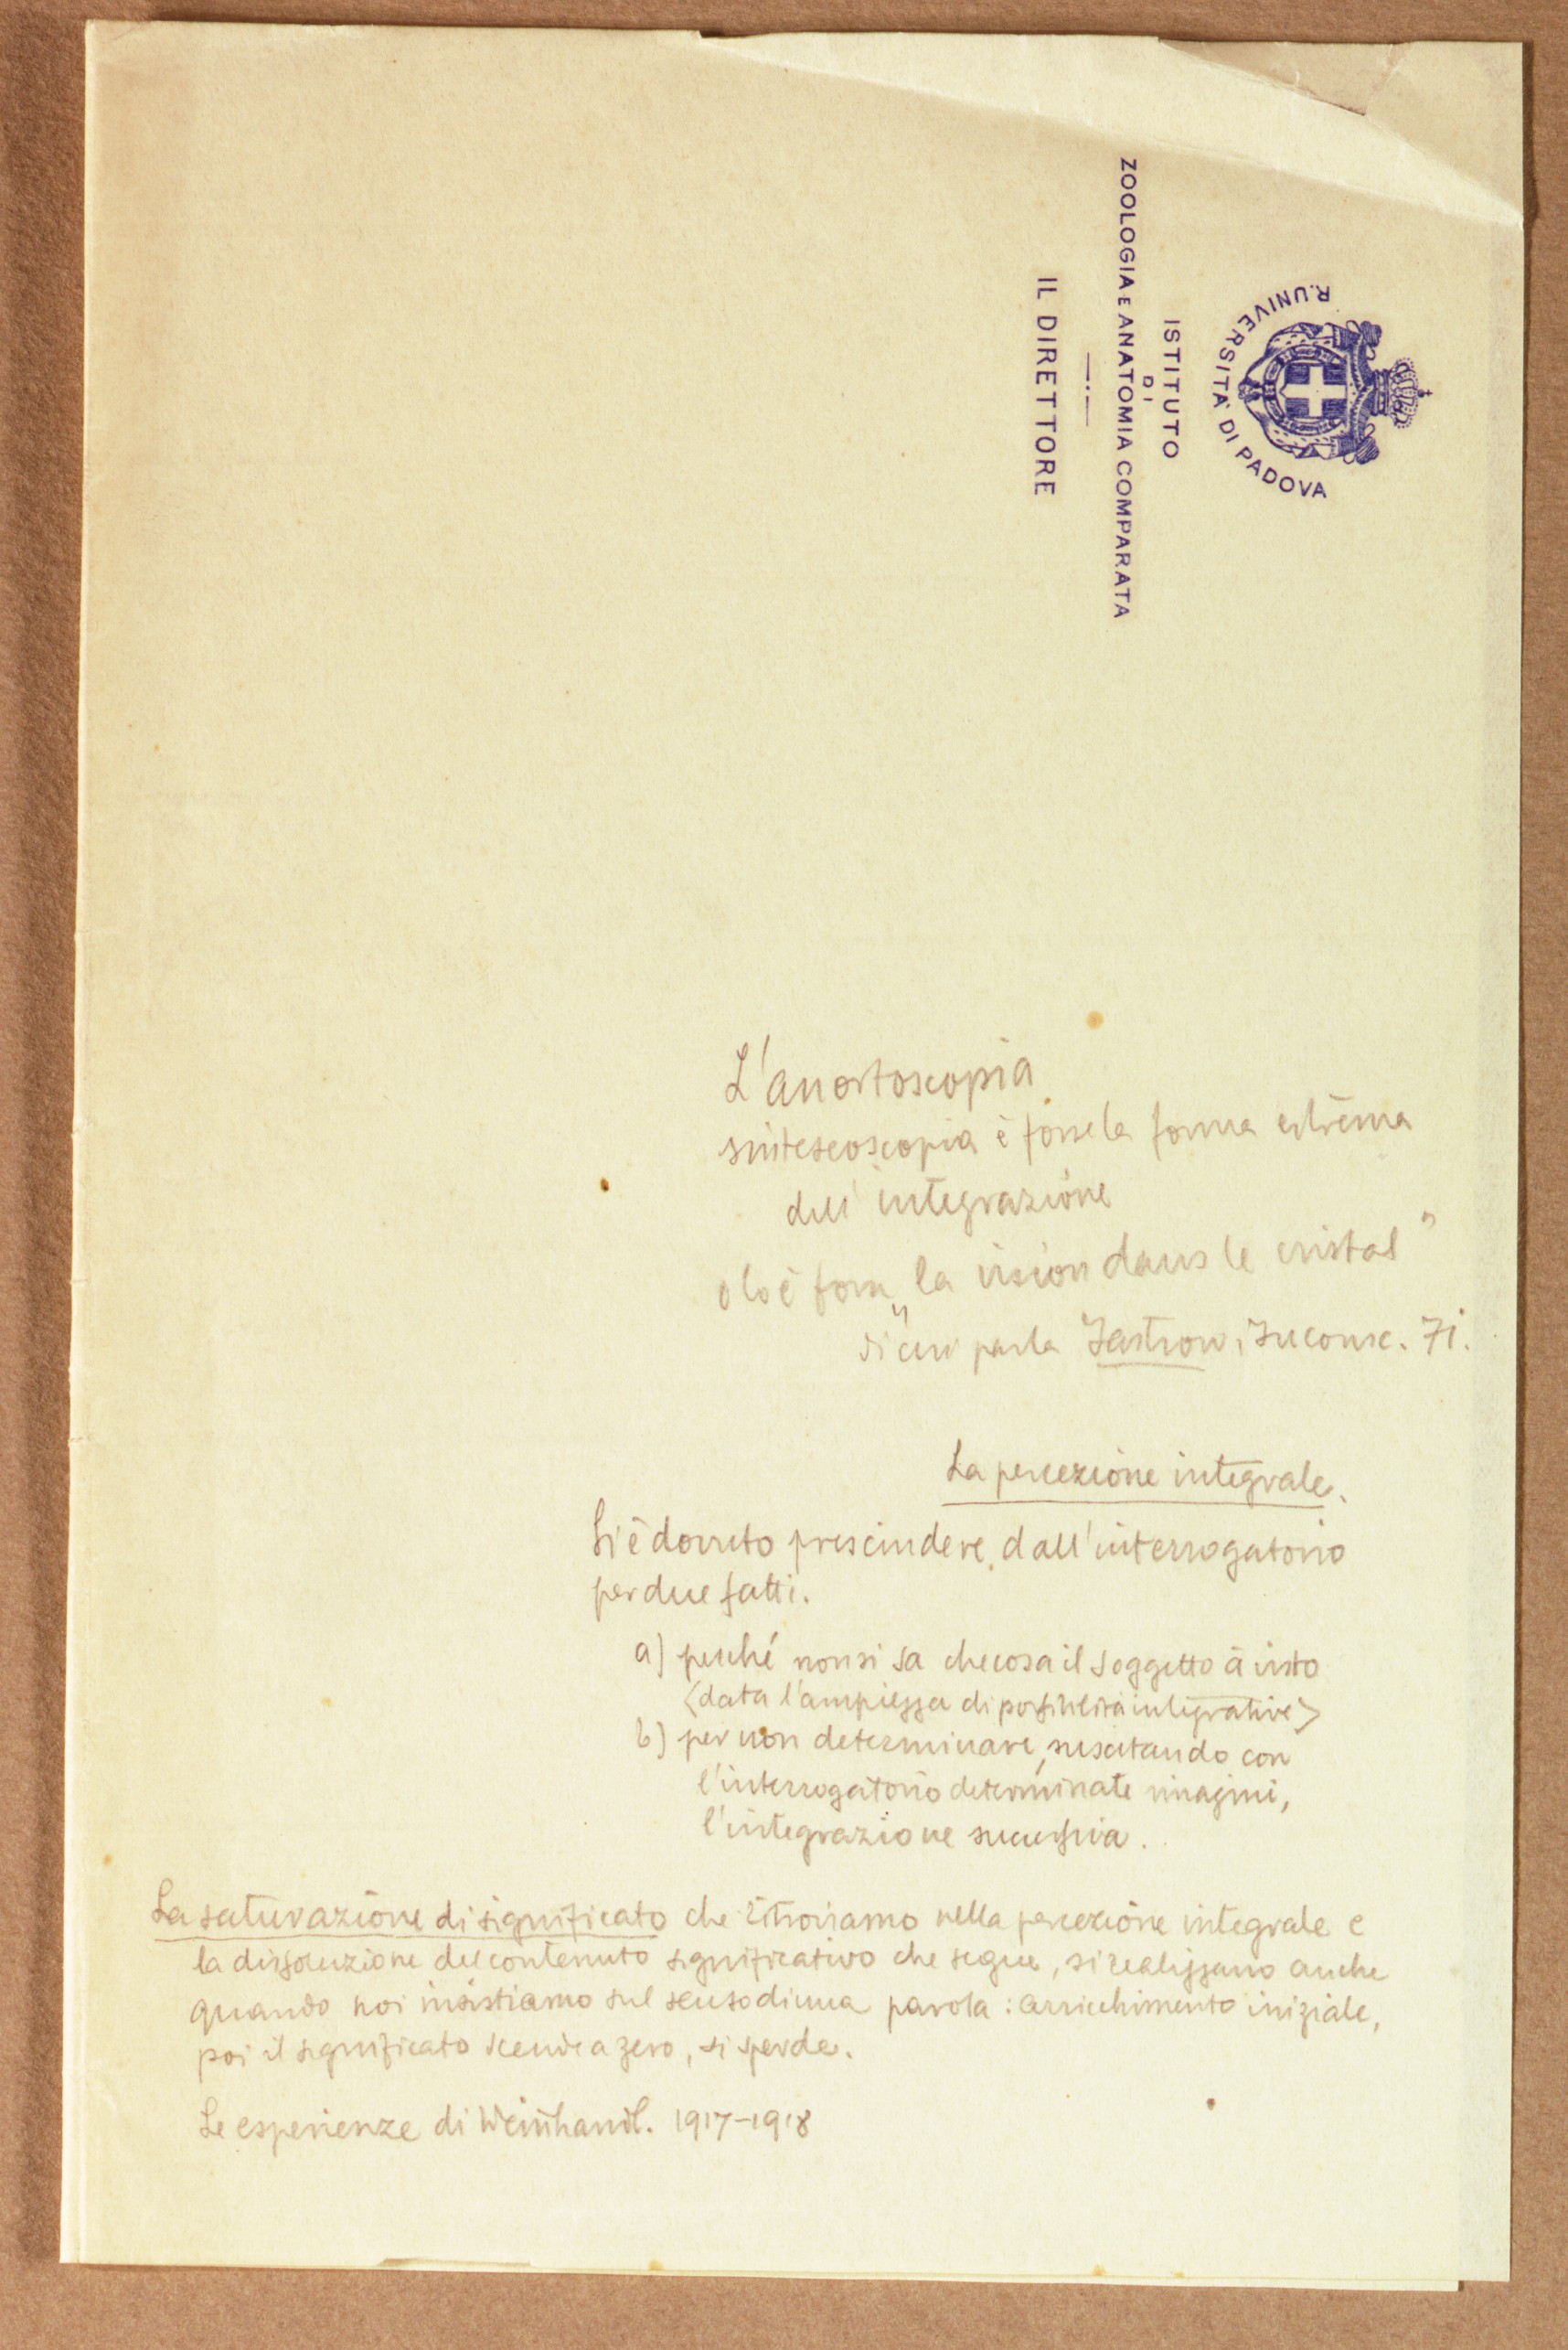 R. UNIVERSITÀ DI PADOVA
ISTITUTO
DI
ZOOLOGIA E ANATOMIA COMPARATA
IL DIRETTORE
L'anortoscopia
sinteseoscopia è forse la forma estrema
dell'integrazione
o lo è forse „la vision dans le cristal"
di cui parla Jastrow, Inconsc. 71.
La percezione integrale.
Si è dovuto prescindere dall'interrogatorio
per due fatti.
a) perché non si sa che cosa il soggetto à visto
<data l'ampiezza di possibilità integrative>
b) per non determinare, suscitando con
l'interrogatorio determinate imagini,
l'integrazione successiva.
La saturazione di significato che ritroviamo nella percezione integrale e
la dissoluzione del contenuto significativo che segue, si realizzano anche
quando noi insistiamo sul senso di una parola: arricchimento iniziale,
poi il significato scende a zero, si sperde.
Le esperienze di Weinhandl. 1917-1918